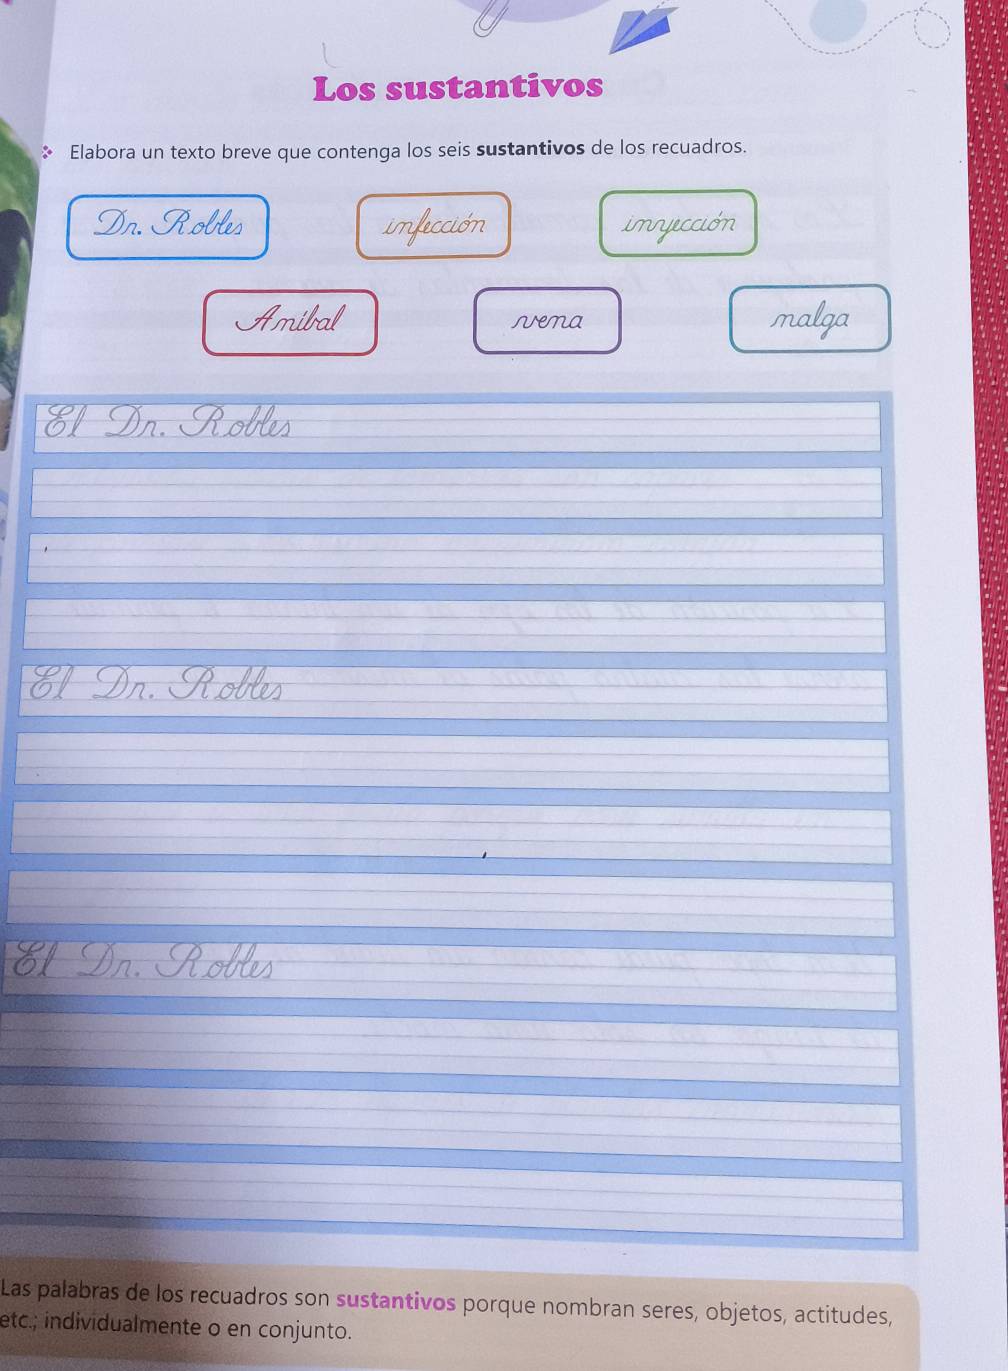 Los sustantivos
Elabora un texto breve que contenga los seis sustantivos de los recuadros.
Dr. Robles infección inyección
Aníbal vena nalga
El Dr. Robles
El Dr. Robles
El Dr. Robles
Las palabras de los recuadros son sustantivos porque nombran seres, objetos, actitudes,
etc.; individualmente o en conjunto.